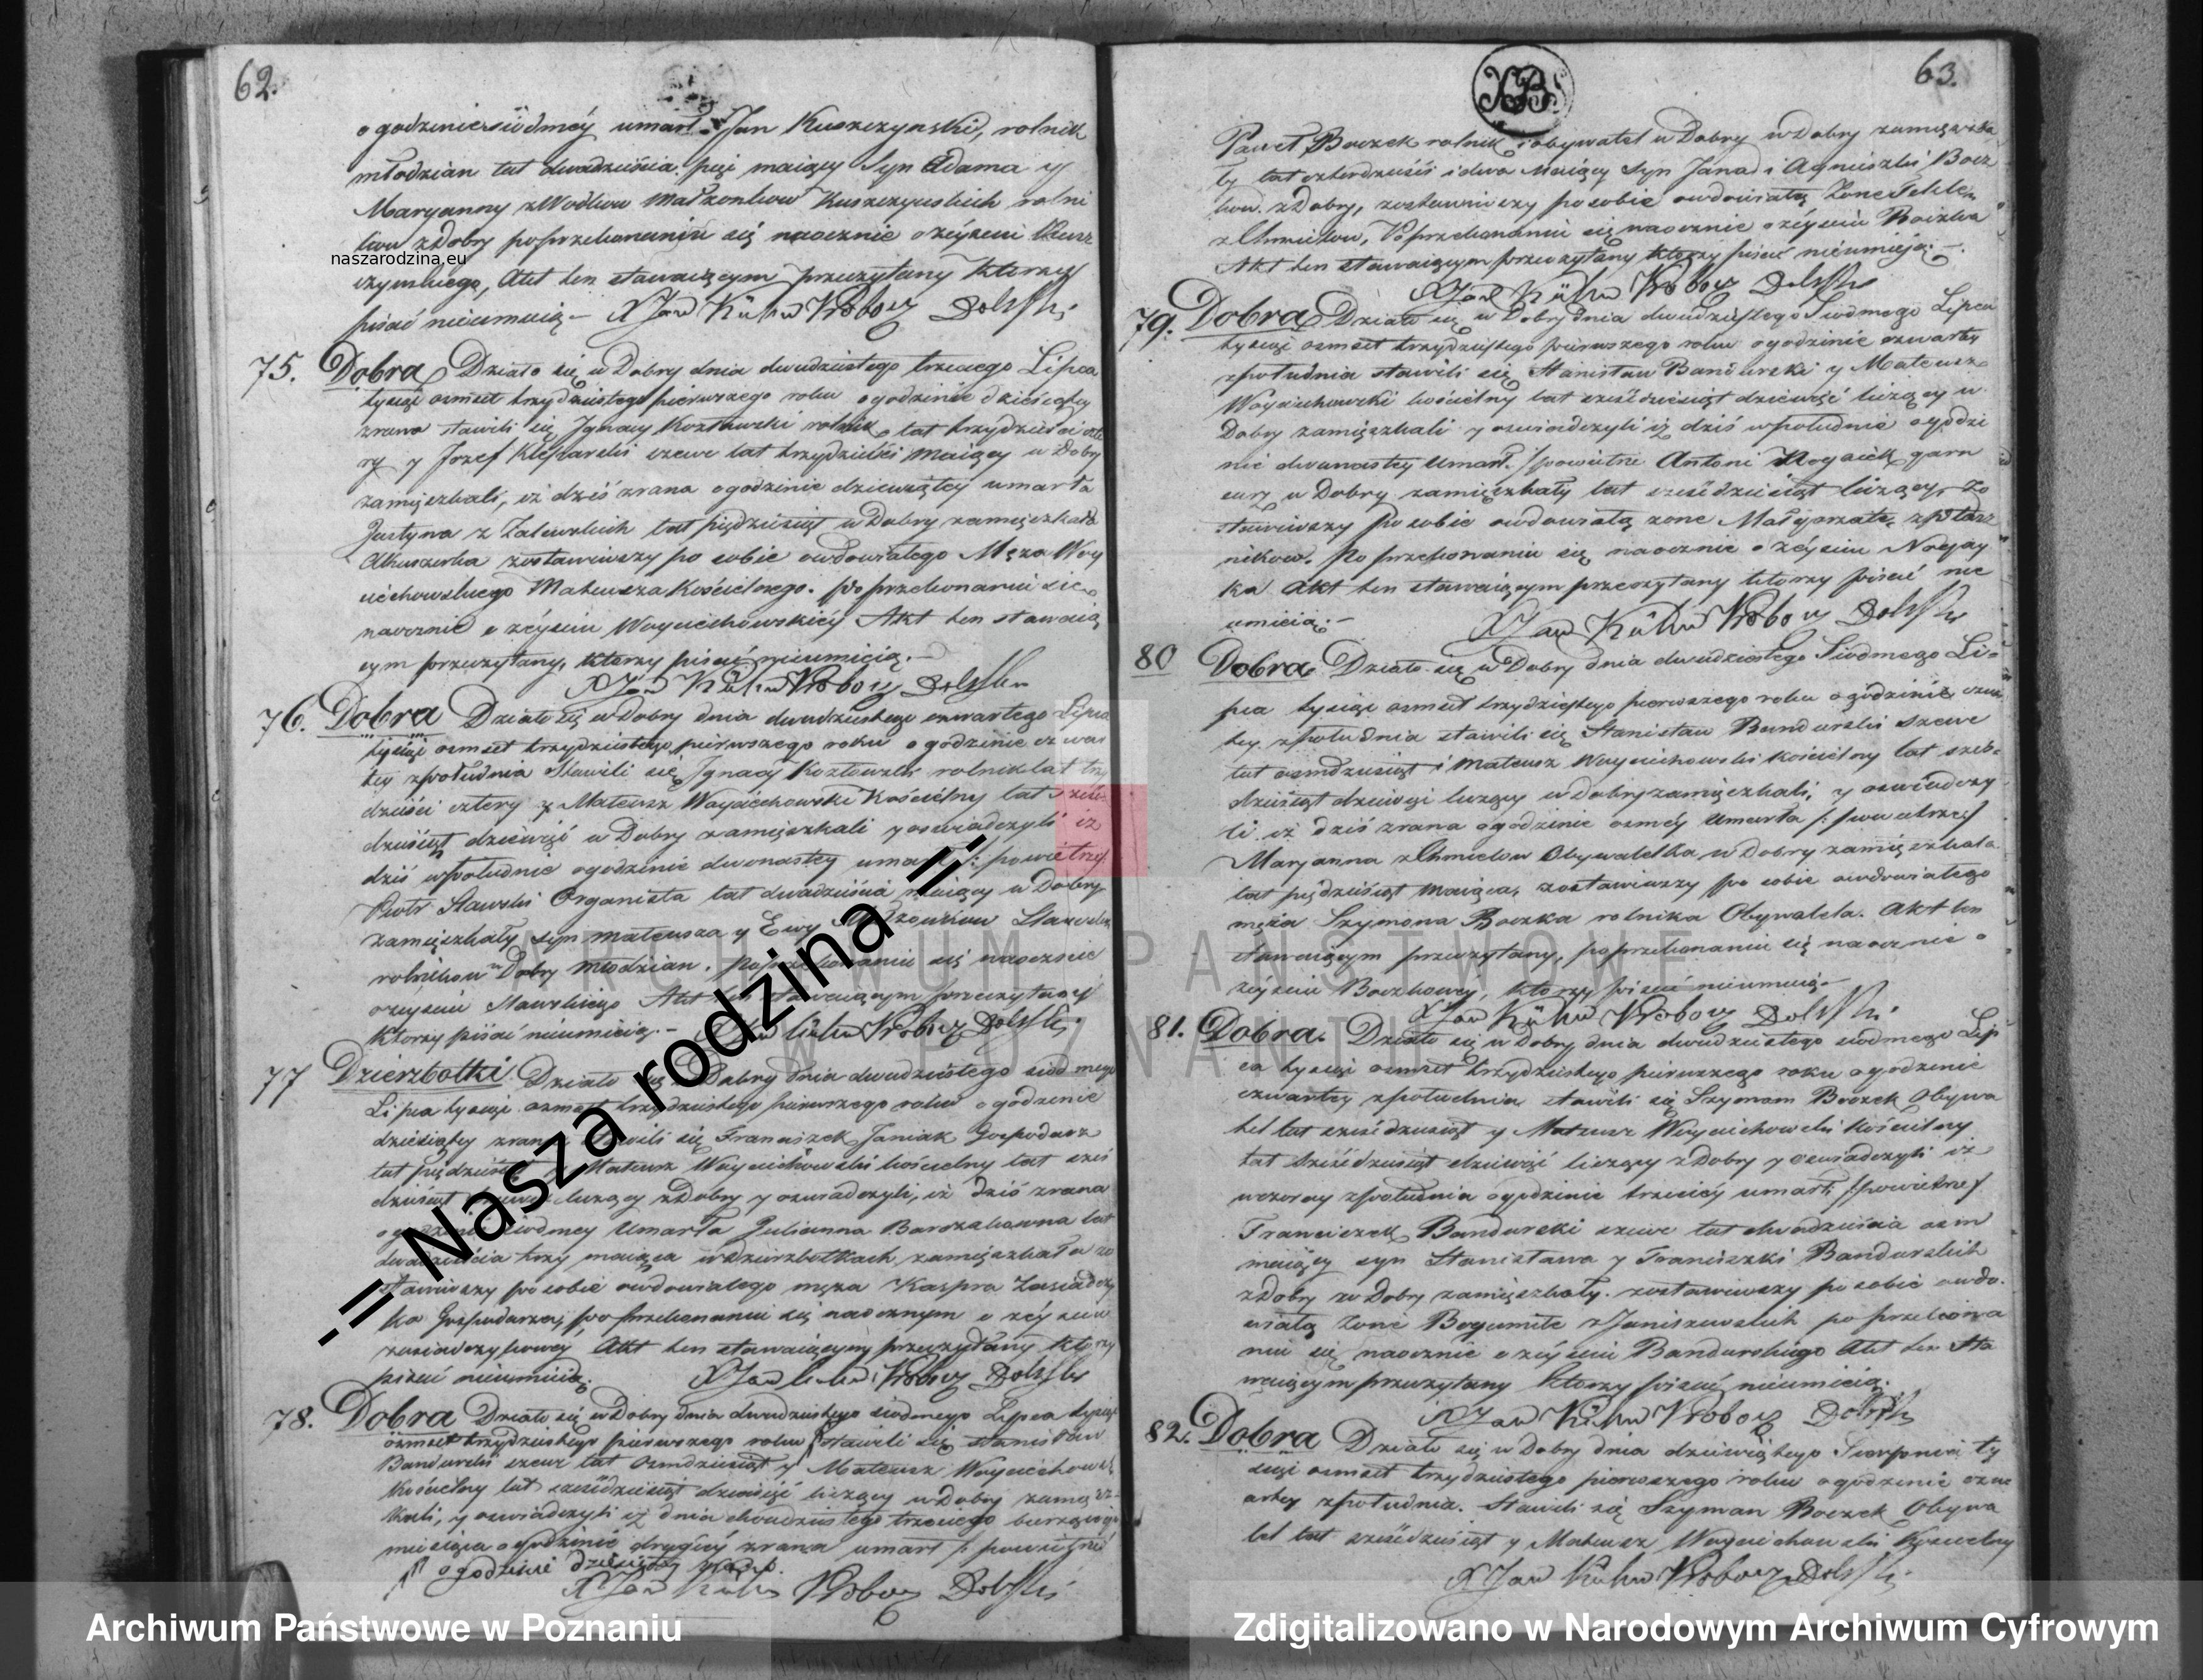 62.
o godzinie siódméy umarł Jan Kuszczynski, rolnik
młodzian lat dwadzieścia maiący Syn Adama y
Maryanny z Małżonkow Kuszczynskich rolni
kow z Dobry po przekonaniu się naocznie o zéyściu Kusz
naszarodzina.eu
czynskiego, Akt ten stawaiącym przeczytany ktorzy
pisać nieumieią. X Jan Kühn Prob: Dobski
75. Dobra Działo się w Dobry dnia dwudziestego trzeciego Lipca
tysiąc osmset trzydziestego pierwszego roku o godzinie dziesiątey
zrana stawili się Ignacy Kozłowski rolnik lat trzydzieści czte
ry y Jozef szewc lat trzydzieści maiący w Dobry
zamięszkali, iż dziś zrana o godzinie dziewiątey umarła
Justyna z Zalewskich lat piędziesiąt w Dobry zamięszkała
Akuszerka zostawiwszy po sobie owdowiałego Męża Woy
ciechowskiego Mateusza Kościelnego. po przekonaniu sie
naocznie o zéyściu Woyciechowskiéy Akt ten stawaią
cym przeczytany, ktorzy pisać nieumieią.
X Jan Kühn Prob:
76. Dobra Działo się w Dobry dnia dwudziestego czwartego Lipca
tysiąc osmset trzydziestego pierwszego roku o godzinie czwar
tey zpołudnia Stawili się Ignacy Kozłowski rolnik lat trzy
dzieści cztery y Mateusz Woyciechowski Kościelny lat sześ
dziesiąt dziewięć w Dobry zamięszkali y oswiadczyli iż
dziś wpołudnie o godzinie dwonastey umarł powietrzny
Piotr Sławski Organista lat dwadzieścia maiący w Dobry
zamięszkały syn Mateusza y Ewy Małżonkow Sławskich
rolnikow w Dobry młodzian. Po przekonaniu się naocznie
o zeyściu Sławskiego Akt ten stawaiącym przeczytany
ktorzy pisać nieumieią. X Jan Kühn Prob:
77 Dzierzbotki Działo się w Dobry dnia dwudziestego siodmego
Lipca tysiąc osmset trzydziestego pierwszego roku o godzinie
dziesiątey zrana stawili się Franciszek Janiak Gospodarz
lat piędziesiąt y Mateusz Woyciechowski kościelny lat sześ
dziesiąt liczący z Dobry y oswiadczyli, iż dziś zrana
o godzinie siodmey Umarła Julianna lat
dwadzieścia trzy maiąca w Dzierzbotkach zamięszkała zo
stawiwszy po sobie owdowiałego męża Kaspra
ka Gospodarza, po przekonaniu się naocznym o zéyściu
Akt ten stawaiącym przeczytany ktorzy
pisać nieumieią. X Jan Kühn Prob:
78. Dobra Działo się w Dobry dnia dwudziestego siodmego Lipca tysiąc
osmset trzydziestego pierwszego roku stawili się Stanisław
Bandurski szewc lat osmdziesiąt y Mateusz Woyciechowski
Kościelny lat sześdziesiąt dziewięć liczący w Dobry zamięsz
kali, y oswiadczyli iż dnia dwudziestego trzeciego bieżącego
miesiąca o godzinie drugiéy zrana umarł powietrzne
o godzinie dziesiątey
X Jan Kühn Prob:
63.
Paweł Boczek rolnik obywatel w Dobry w Dobry zamięszka
ły lat czterdzieści i dwa Maiący Syn Jana i Agnieszki Bocz
kow z Dobry, zostawiwszy po sobie owdowiałą Żone Tekle
z Chmielow, Po przekonaniu się naocznie o zéyściu Boczka
Akt ten stawaiącym przeczytany ktorzy pisać nieumieją.
X Jan Kühn Prob:
79. Dobra Działo się w Dobry dnia dwudziestego Siodmego Lipca
tysiąc osmset trzydziestego pierwszego roku o godzinie czwartey
zpołudnia stawili się Stanisław Bandurski y Mateusz
Woyciechowski kościelny lat sześdziesiąt dziewięć liczący w
Dobry zamięszkali y oswiadczyli iż dziś wpołudnie o godzi
nie dwunastey Umarł powietrzne Antoni garn
carz w Dobry zamięszkały lat sześdziesiąt liczący, zo
stawiwszy po sobie owdowiałą zone Małgorzate
nikow. Po przekonaniu się naocznie o zéyściu
ka Akt ten stawaiącym przeczytany ktorzy pisać nie
umieią.
X Jan Kühn Prob:
80 Dobra. Działo się w Dobry dnia dwudziestego Siodmego Li-
pca tysiąc osmset trzydziestego pierwszego roku o godzinie czwar
tey zpołudnia stawili się Stanisław Bandurski szewc
lat osmdziesiąt i Mateusz Woyciechowski kościelny lat sześ-
dziesiąt dziewięć liczący w Dobry zamięszkali, y oswiadczy
li iż dziś zrana o godzinie osméy Umarła
Maryanna z Chmielow Obywatelka w Dobry zamięszkała
lat piędziesiąt maiąca, zostawiwszy po sobie owdowiałego
męża Szymona Boczka rolnika Obywatela. Akt ten
stawaiącym przeczytany, po przekonaniu się naocznie o
zéyściu Boczkowéy, ktorzy pisać nieumieią.
X Jan Kühn Prob:
81. Dobra. Działo się w Dobry dnia dwudziestego siodmego Lip
ca tysiąc osmset trzydziestego pierwszego roku o godzinie
czwartey zpołudnia stawili się Szymon Boczek Obywa
tel lat sześdziesiąt y Mateusz Woyciechowski kościelny
lat sześdziesiąt dziewięć liczący z Dobry y oswiadczyli iż
wczoray zpołudnia o godzinie trzeciéy umarł
Franciszek Bandurski szewc lat dwadzieścia osm
maiący syn Stanisława y Franciszki Bandurskich
z Dobry w Dobry zamięszkały. zostawiwszy po sobie owdo-
wiałą Żone Bogumiłe z Janiszewskich po przekona
niu się naocznie o zéyściu Bandurskiego Akt ten Sta
waiącym przeczytany ktorzy pisać nieumieią.
X Jan Kühn Prob:
82. Dobra Działo się w Dobry dnia dziewiątego Sierpnia ty
siąc osmset trzydziestego pierwszego roku o godzinie czwa
artey zpołudnia. Stawili się Szyman Boczek Obywa
tel lat sześdziesiąt y Mateusz Woyciechowski Kościelny
X Jan Kühn Prob:
ARCHIWUM PAŃSTWOWE
W POZNANIU
-:= Nasza rodzina =:-
Archiwum Państwowe w Poznaniu
Zdigitalizowano w Narodowym Archiwum Cyfrowym